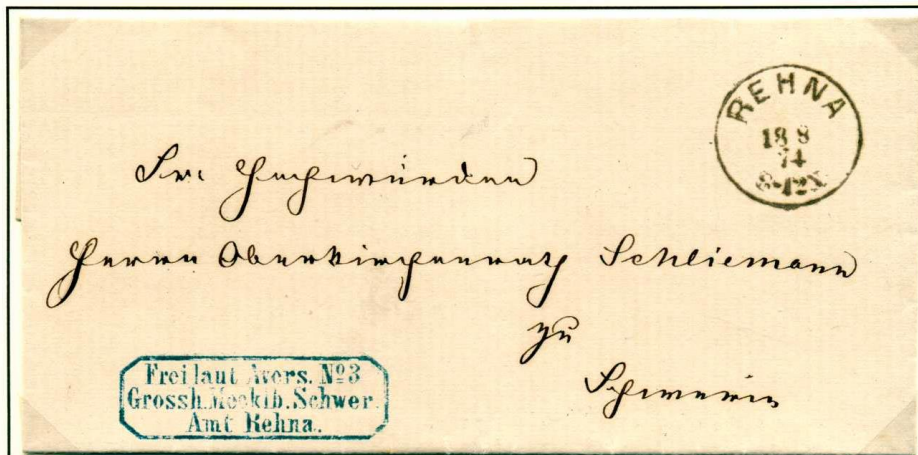 REHNA
18 8
74
8-12N
Sr. Hochwürden
Herrn Oberkirchenrath Schliemann
zu
Schwerin
Frei laut Avers. №3
Grossh. Mecklb. Schwer.
Amt Rehna.